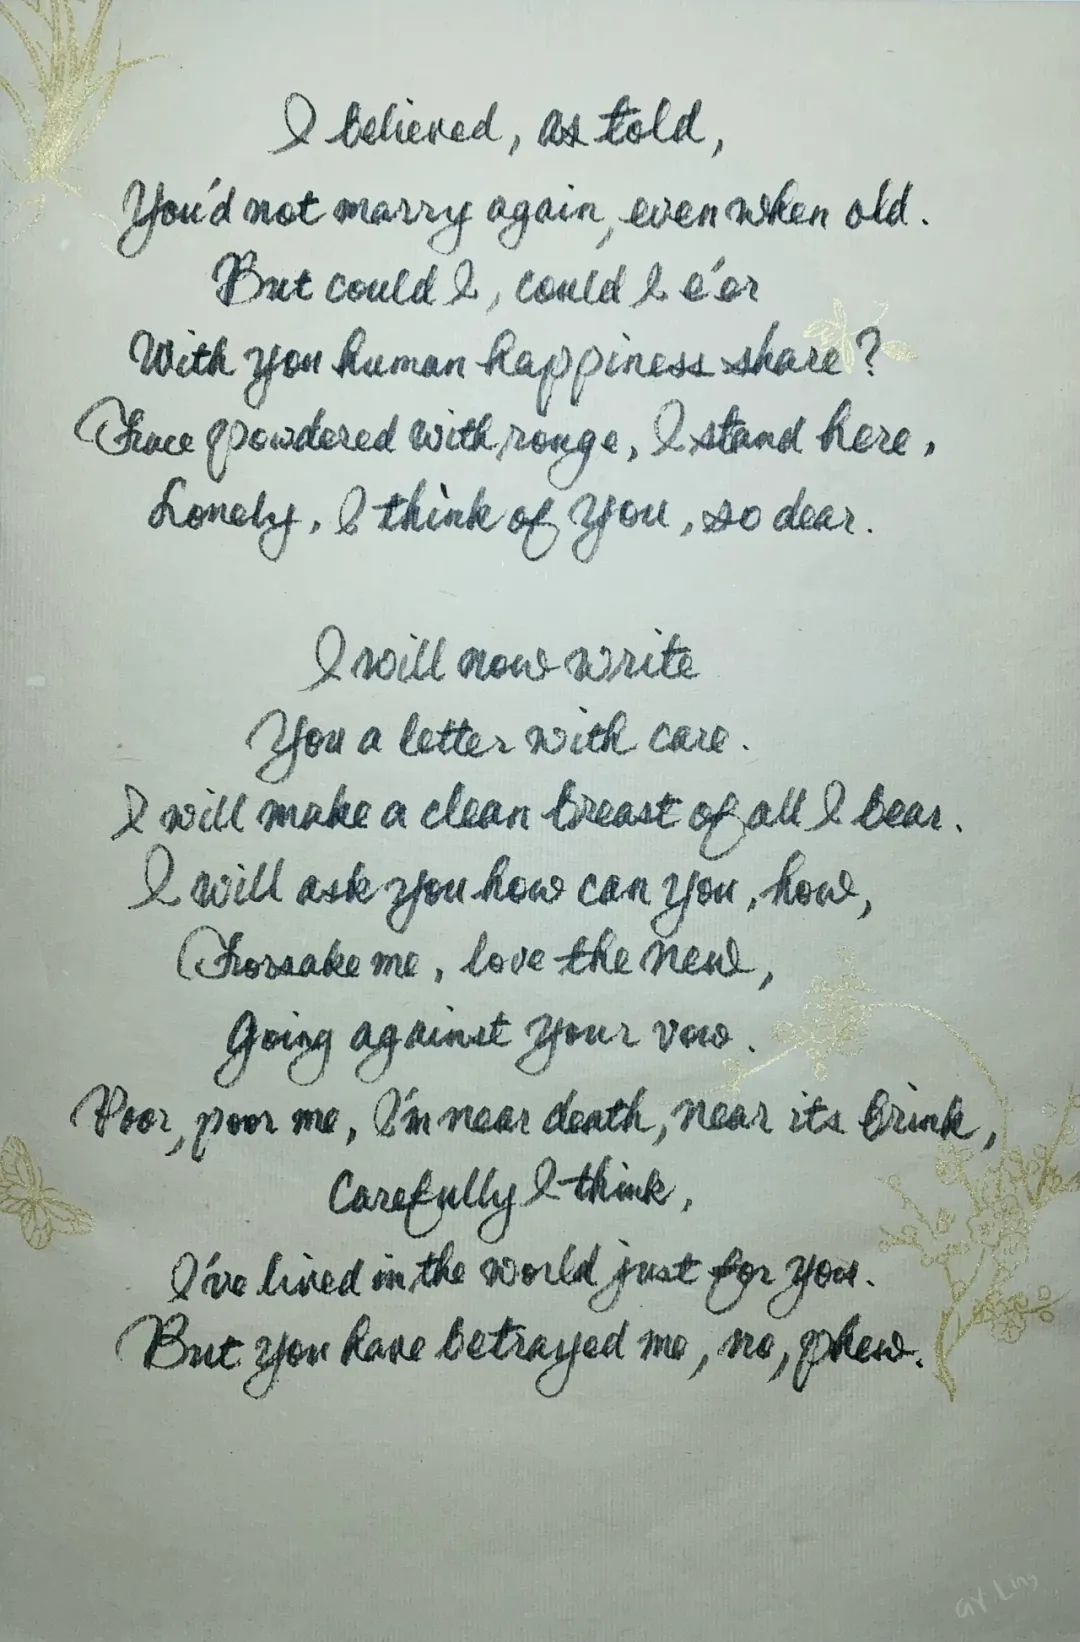 I believed, as told,
You'd not marry again, even when old.
But could I, could I e'er
With you human happiness share?
Face powdered with rouge, I stand here,
Lonely, I think of you, so dear.
I will now write
You a letter with care.
I will make a clean breast of all I bear.
I will ask you how can you, how,
Forsake me, love the new,
Going against your vow.
Poor, poor me, I'm near death, near its brink,
Carefully I think,
I've lived in the world just for you.
But you have betrayed me, no, phew.
GY Ling